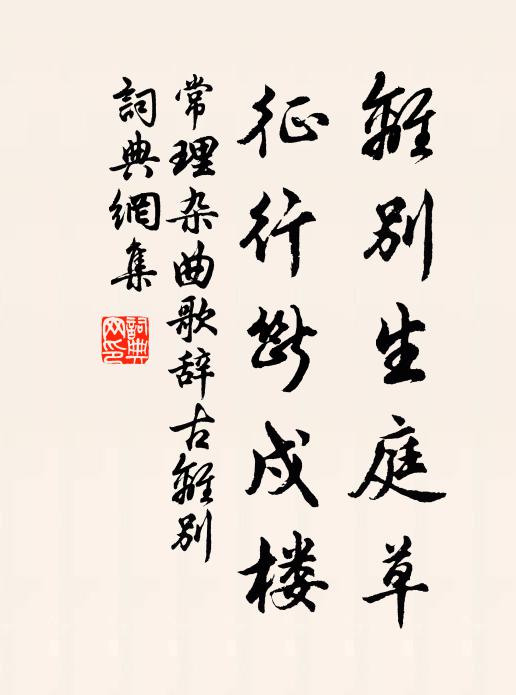 離别生庭草
征行断戍楼
常理杂曲歌辞古離别
詞典網集
詞典网印